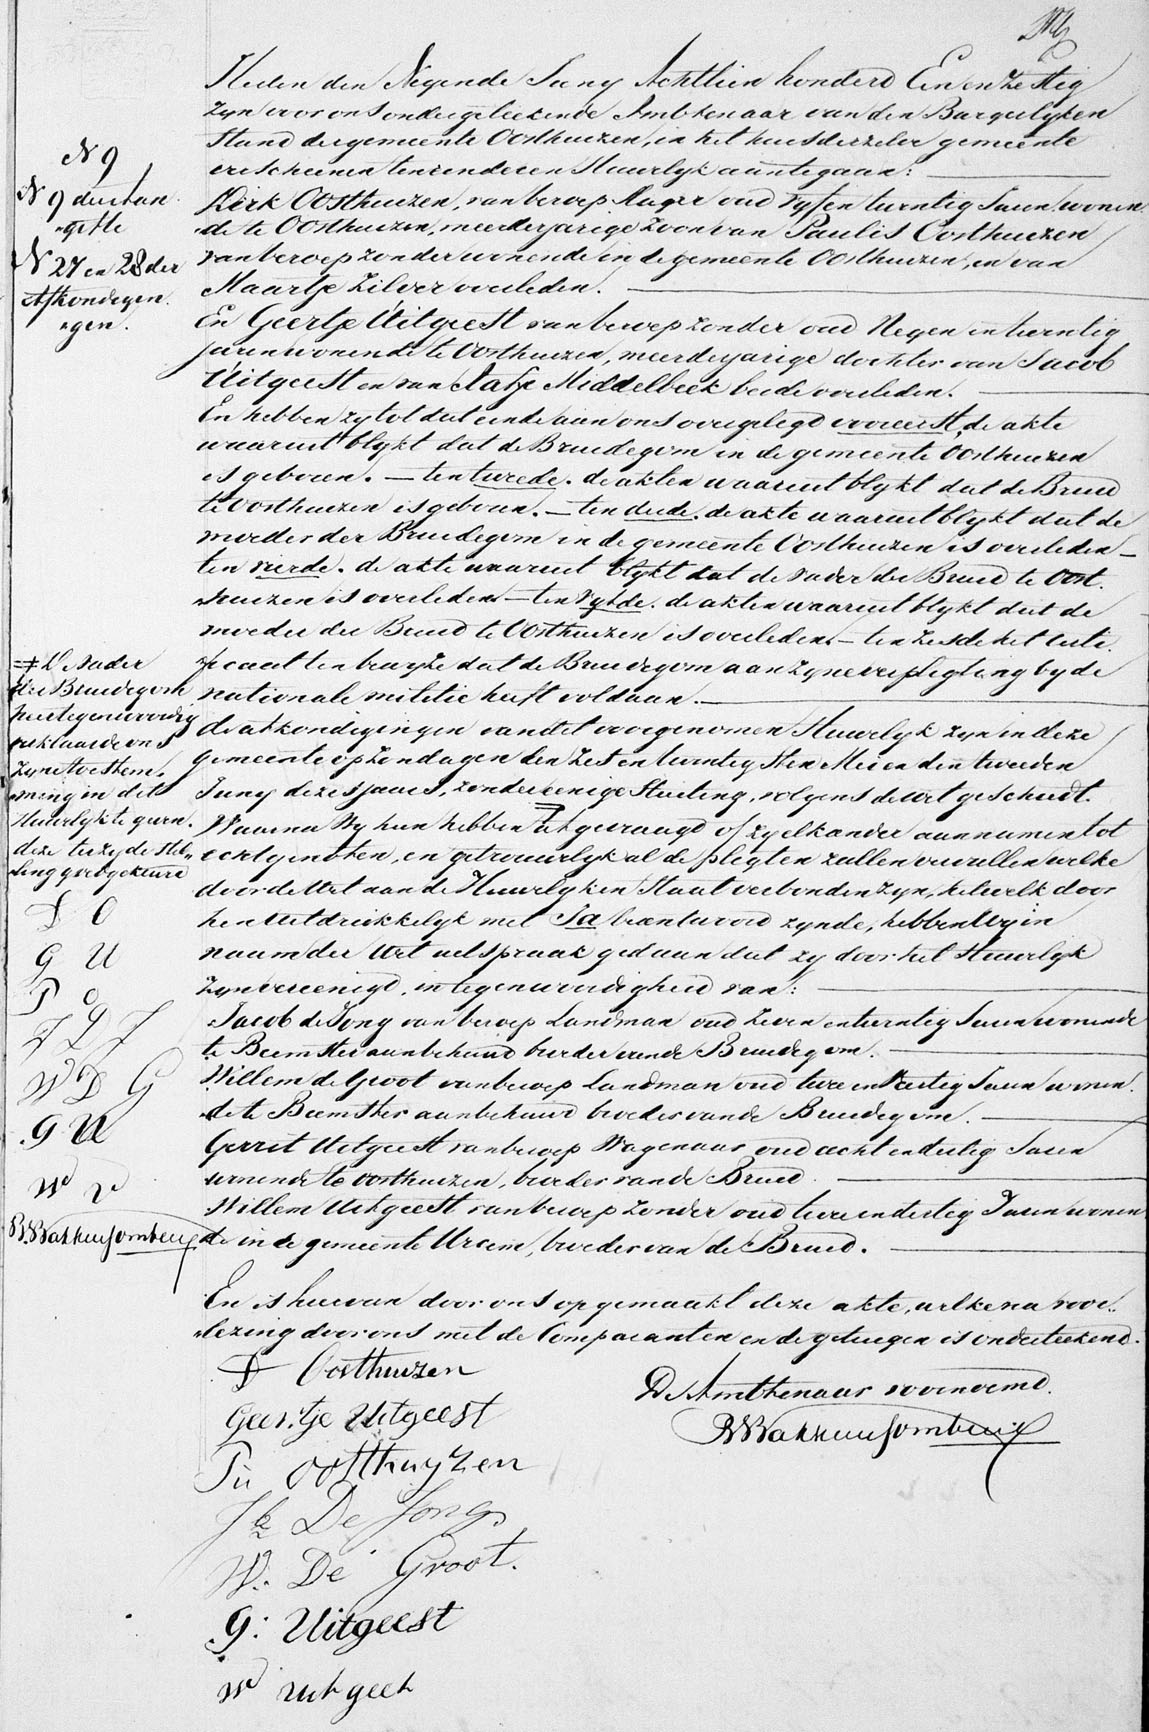 Heden den Negende Juny Achttien honderd Een en zestig
zyn voor ons ondergeteekende Ambtenaar van den Burgerlyken
Stand der gemeente Oosthuizen, in het huis derzelver gemeente
verschenen ten einde een Huwelyk aantegaan:
Dirk Oosthuizen, van beroep oud vyf en twintig Jaren wonen
de te Oosthuizen, meerderjarige zoon van Paulis Oosthuizen
van beroep zonder wonende in de gemeente Oosthuizen, en van
Maartje Zilver overleden.
En Geertje Uitgeest van beroep zonder oud Negen en twintig
jaren wonende te Oosthuizen, meerderjarige dochter van Jacob
Uitgeest en van Aafje Middelbeek beide overleden.
En hebben zy tot dat einde aan ons overgelegd vooreerst, de akte
waaruit blykt dat de Bruidegom in de gemeente Oosthuizen
is geboren. — ten tweede. de akten waaruit blykt dat de Bruid
te Oosthuizen is geboren. — ten derde. de akte waaruit blykt dat de
moeder der Bruidegom in de gemeente Oosthuizen is overleden —
ten vierde. de akte waaruit blykt dat de vader der Bruid te Oost
huizen is overleden — ten vyfde. de akten waaruit blykt dat de
moeder der Bruid te Oosthuizen is overleden. — ten zesde het certi
ficaat ten bewyze dat de Bruidegom aan zyne verpligting by de
nationale militie heeft voldaan.
de afkondigingen van dit voorgenomen Huwelyk zyn in deze
gemeente op Zondagen den Zes en twintigsten Mei en den tweeden
Juny dezes jaars, zonder eenige stuiting, volgens de wet geschiedt.
Waarna Wy hun hebben afgevraagd of zy elkander aannamen tot
echtgenooten, en getrouwelyk al de pligten zullen vervullen welke
door de Wet aan de Huwelyken Staat verbonden zyn, hetwelk door
hen uitdrukkelyk met Ja beantwoord zynde, hebben Wy in
naam der Wet uitspraak gedaan dat zy door het Huwelyk
zyn vereenigd, in tegenwoordigheid van:
Jacob de Jong van beroep Landman oud zeven en twintig Jaren wonende
te Beemster aanbehuwd broeder vande Bruidegom.
Willem de Groot van beroep Landman oud twee en Jaren wonen
de te Beemster aanbehuwd broeder vande Bruidegom.
Gerrit Uitgeest van beroep Wagenaar oud acht en dertig Jaren
wonende te Oosthuizen, broeder vande Bruid
Willem Uitgeest van beroep zonder oud twee en dertig Jaren wonen
de in de gemeente Ursem, broeder van de Bruid.
En is hiervan door ons opgemaakt deze akte, welke na voor
lezing door ons met de Comparanten en de getuigen is onderteekend.
D Oosthuizen
Geertje Uitgeest
Pu Oosthuyzen
Jb De Jong
W. De Groot.
G: Uitgeest
W Uitgeest
De Ambtenaar voornoemd.
N 9
N 9 der huu
N 27 en 28 der
Afkondigin
gen.
≠ De Vader
der Bruidegom
hier tegenwoordig
verklaarde ons
zyne toestem
ming in dit
Huwelyk te geven.
deze terzyde stel
ling goedgekeurd
D O
G U
P O
J D J
W D G
G U
W U